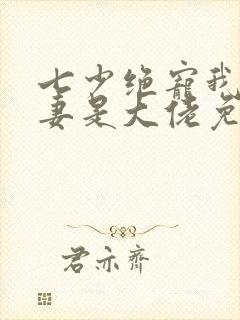 七少绝宠我
妻是大佬免
君亦齐